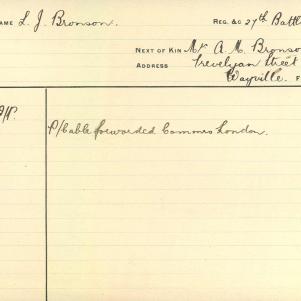 AME L. J. Bronson. REG. &C 27th Battl
NEXT OF KIN Mr A. M. Bronso
ADDRESS Trevelyan Street
Wayville. F
P/Cable forwarded Commos London.